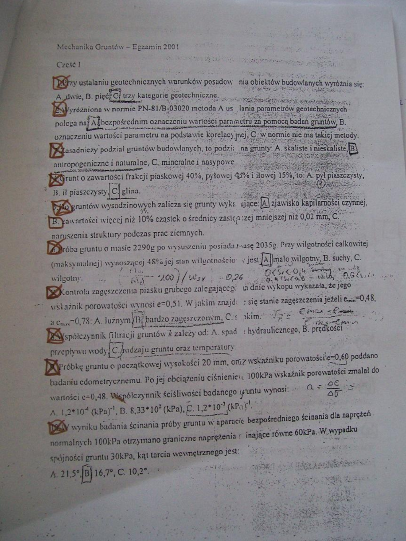 Mechanika Gruntów – Egzamin 2001
Część 1
Przy ustalaniu geotechnicznych warunków posadow nia obiektów budowlanych wyróżnia się:
A. dwie, B. pięć, C. trzy kategorie geotechniczne.
Wyrażona w normie PN-81/B-03020 metoda A us lania parametrów geotechnicznych
polega na A. bezpośrednim oznaczeniu wartości parametru za pomocą badań gruntów, B.
oznaczeniu wartości parametru na podstawie korelacyjnej, C. w normie nie ma takiej metody.
Zasadniczy podział gruntów budowlanych, to podzi na grunty: A. skaliste i nieskaliste, B.
antropogeniczne i naturalne, C. mineralne i nasypowe
Grunt o zawartości frakcji piaskowej 40%, pyłowej 45% i iłowej 15%, to: A. pył piaszczysty,
B. ił piaszczysty, C. glina.
Do gruntów wysadzinowych zalicza się grunty wyk ujące A. zjawisko kapilarności czynnej,
B. zawartości więcej niż 10% cząstek o średnicy zastępczej mniejszej niż 0,02 mm, C.
naruszenia struktury podczas prac ziemnych.
Próba gruntu o masie 2290g po wysuszeniu posiada masę 2035g. Przy wilgotności całkowitej
(maksymalnej) wynoszącej 48% jej stan wilgotności jest A. mało wilgotny, B. suchy, C.
wilgotny.
Kontrola zagęszczenia piasku grubego zalegającego na dnie wykopu wykazała, że jego
wskaźnik porowatości wynosi e=0,51. W jakim znajd się stanie zagęszczenia jeżeli emin=0,48,
a emax=0,78: A. luźnym, B. bardzo zagęszczonym, C. s kim.
Współczynnik filtracji gruntów k zależy od: A. spad hydraulicznego, B. prędkości
przepływu wody, C. rodzaju gruntu oraz temperatury
Próbkę gruntu o początkowej wysokości 20 mm, oraz wskaźniku porowatości e=0,60 poddano
badaniu edometrycznemu. Po jej obciążeniu ciśnieniem 100kPa wskaźnik porowatości zmalał do
wartości e=0,48. Współczynnik ściśliwości badanego gruntu wynosi:
A. 1,2*10⁻⁴ (kPa)⁻¹, B. 8,33*10² (kPa), C. 1,2*10⁻³ (kPa)⁻¹
W wyniku badania ścinania próby gruntu w aparacie bezpośredniego ścinania dla naprężeń
normalnych 100kPa otrzymano graniczne naprężenia ścinające równe 60kPa. W wypadku
spójności gruntu 30kPa, kąt tarcia wewnętrznego jest:
A. 21,5°, B. 16,7°, C. 10,2°.